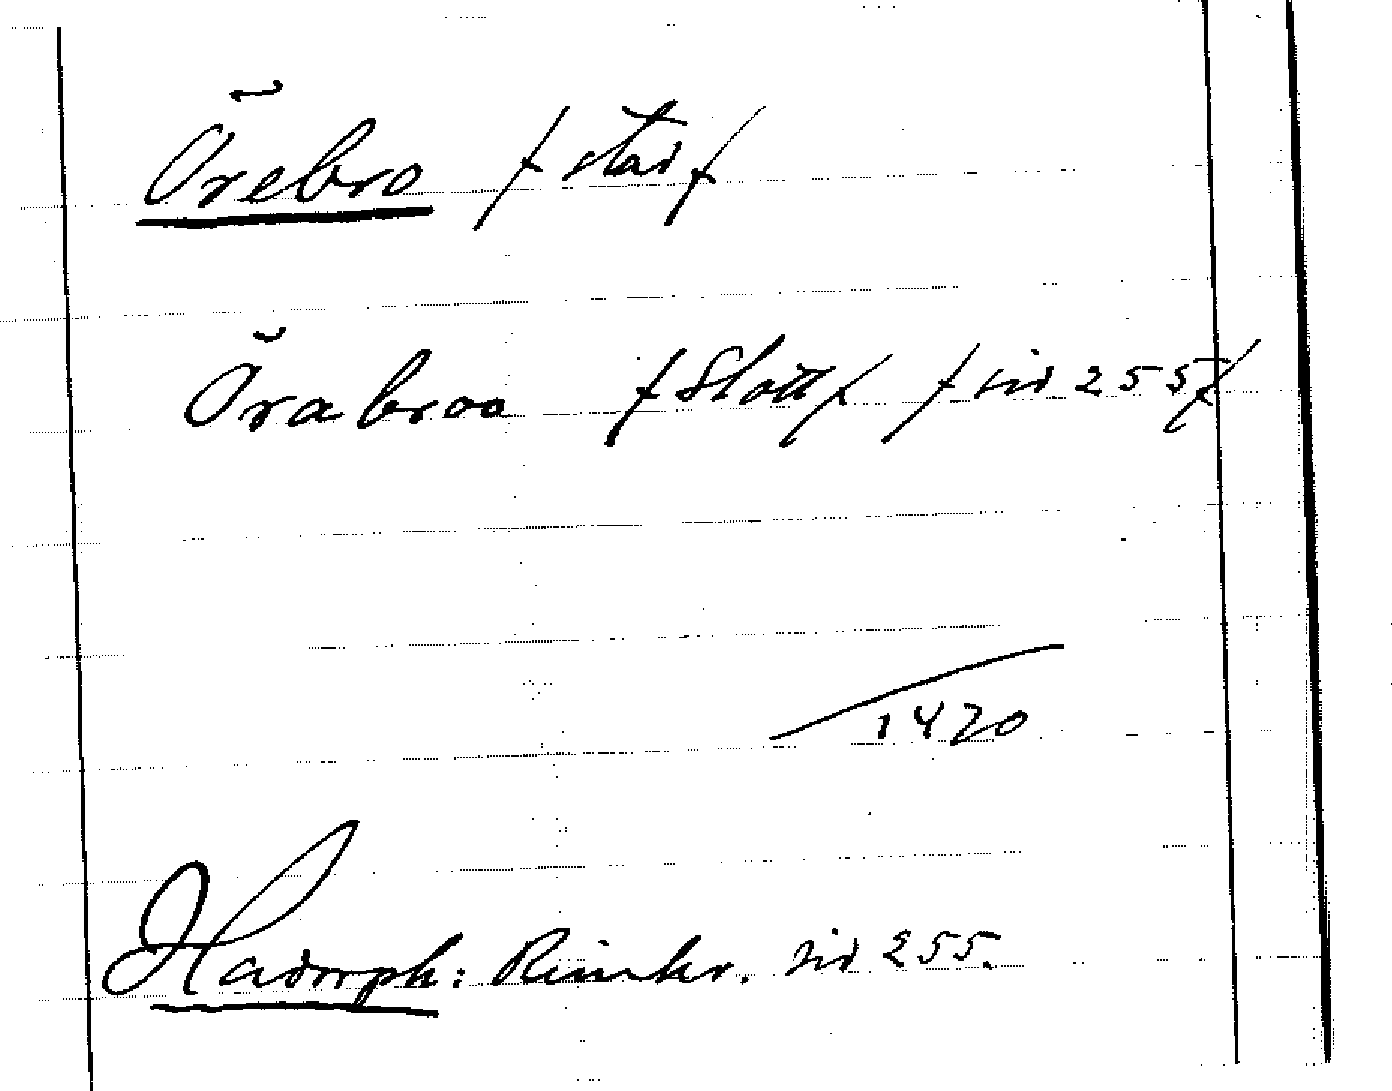 Örebro /: stad :/
Örabroo /: Slott :/ /: sid 255 :/
1420
Hadorph: Rimkr. sid 255.